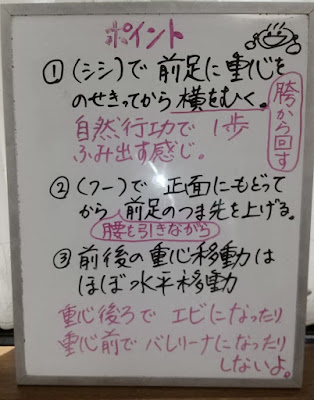 ポイント
①(シシ)で前足に重心を
のせきってから横をむく。
胯から回す
自然行功で1歩
ふみ出す感じ。
②(フー)で正面にもどって
から前足のつま先を上げる。
腰を引きながら
③前後の重心移動は
ほぼ水平移動
重心後ろでエビになったり
重心前でバレリーナになったり
しないよ。